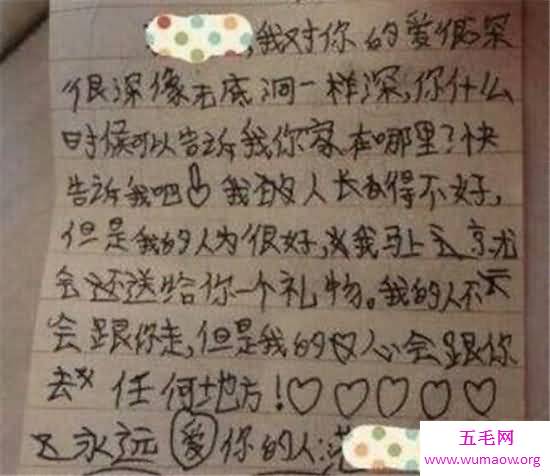 ,我对你的爱很深
很深像无底洞一样深,你什么
时候可以告诉我你家在哪里?快
告诉我吧 我人长得不好,
但是我的人为很好,我马上就
会还送给你一个礼物。我的人不
会跟你走,但是我的心会跟你
去任何地方!♡♡♡♡♡
永远爱你的人:
五毛网
www.wumaow.org